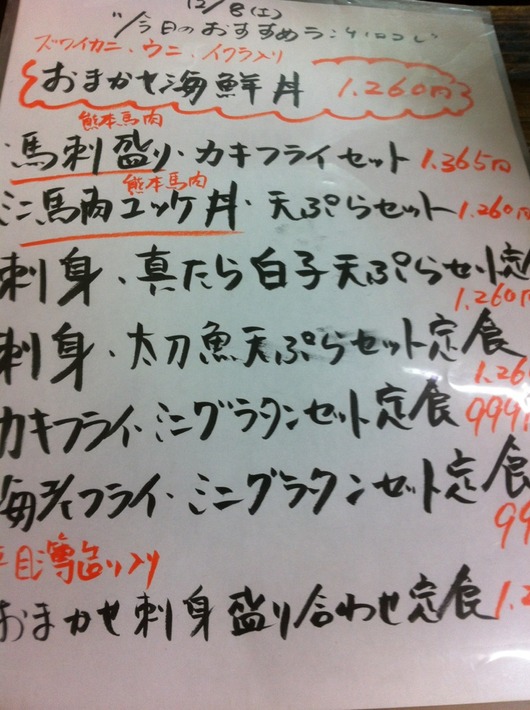 12/8(土)
"今日のおすすめランチ
ズワイカニ、ウニ、イクラ入り
おまかせ海鮮丼 1.260円
熊本馬肉
馬刺盛り・カキフライセット 1.365円
熊本馬肉
ミニ馬肉ユッケ丼・天ぷらセット 1.260円
刺身・真たら白子天ぷらセット定食
1.260円
刺身・太刀魚天ぷらセット定食
1.26
カキフライ・ミニグラタンセット定食 999円
海老フライ・ミニグラタンセット定食
99
平目 入り
おまかせ刺身盛り合わせ定食 1.2